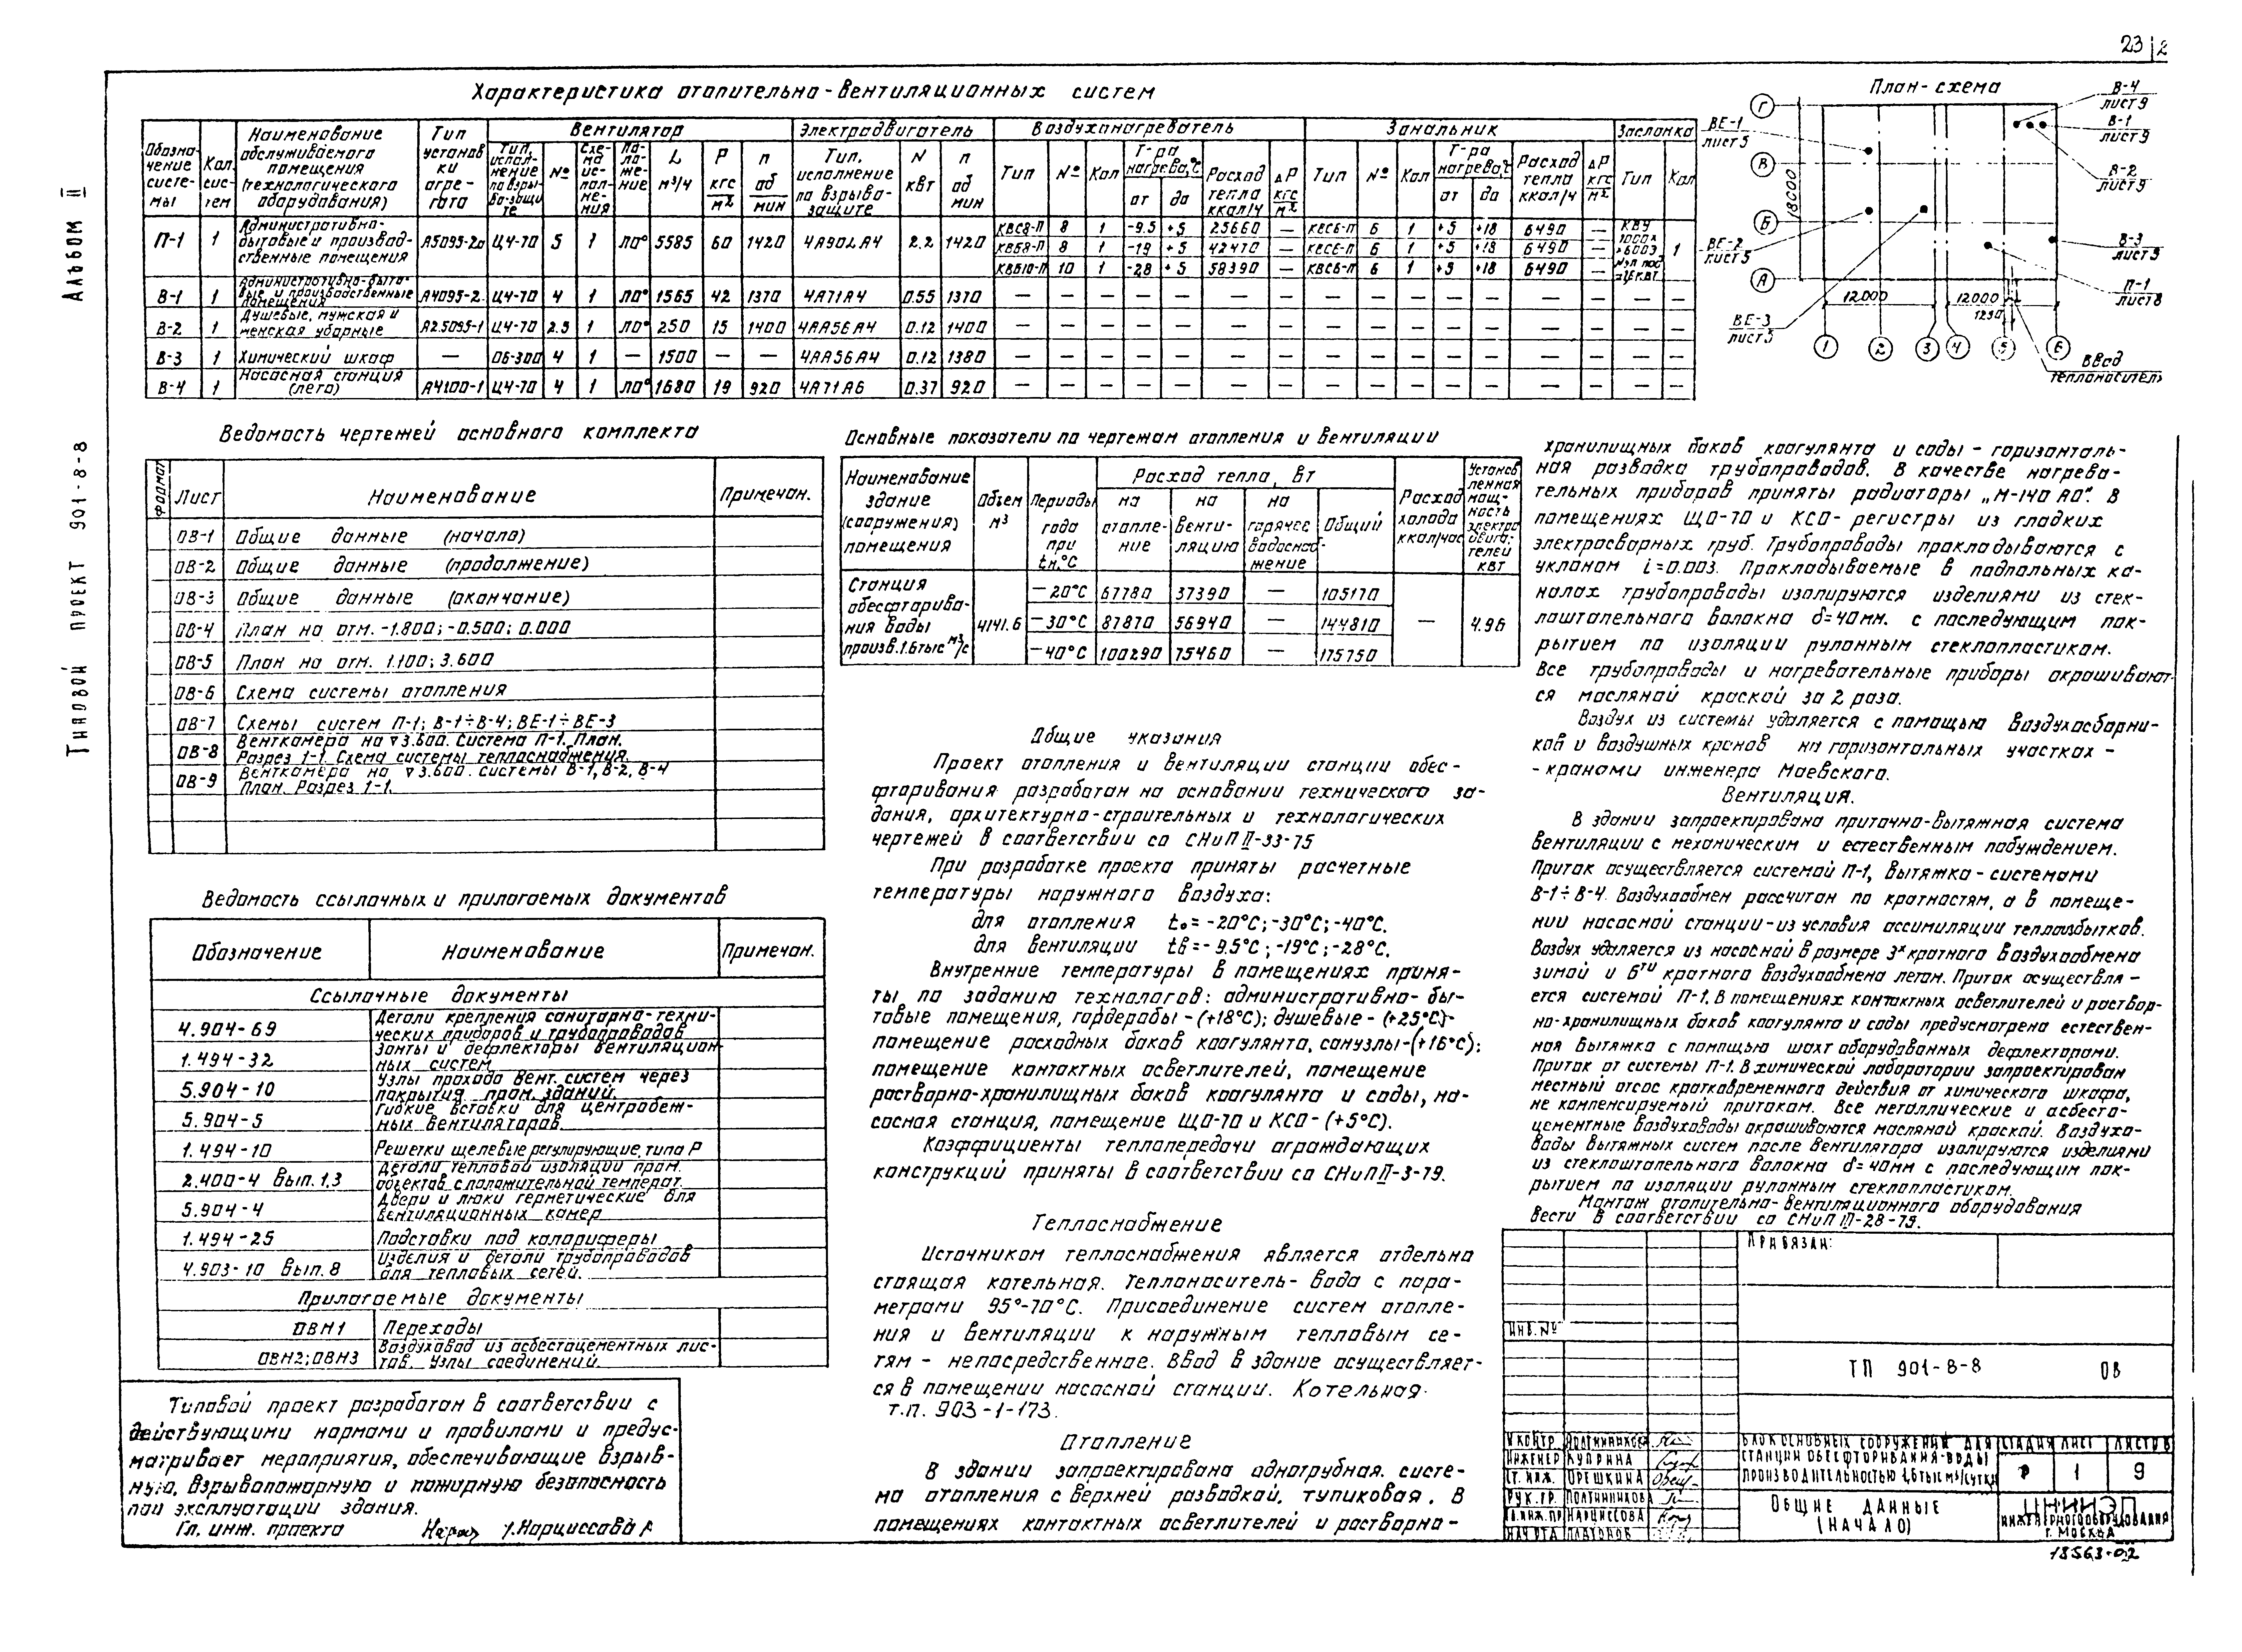 23 2
Альбом II
Типовой проект 901-8-8
Характеристика отопительно-вентиляционных систем
Обозна-чение систе-мы | Кол. сис-тем | Наименование обслуживаемого помещения (технологического оборудования) | Тип установки агре-гата | Вентилятор | Электродвигатель | Воздухонагреватель | Зональник | Заслонка
Тип, испол-нение по взры-во-защи-те | № | Схе-ма ис-пол-не-ния | По-ло-же-ние | L м³/ч | P кгс/м² | n об/мин | Тип, исполнение по взрыво-защите | N кВт | n об/мин | Тип | № | Кол | Т-ра нагрева,°С от до | Расход тепла ккал/ч | ΔP кгс/м² | Тип | № | Кол | Т-ра нагрева,°С от до | Расход тепла ккал/ч | ΔP кгс/м² | Тип | Кол
П-1 | 1 | Административно-бытовые и производ-ственные помещения | А5095-2а | Ц4-70 | 5 | 1 | Л0° | 5585 | 60 | 1420 | 4А90L А4 | 2.2 | 1420 | КВС8-П | 8 | 1 | -9.5 | +5 | 25660 | — | КВС6-П | 6 | 1 | +5 | +18 | 6490 | — | КВУ 1000х | 1
КВБ8-П | 8 | 1 | -19 | +5 | 42470 | — | КВС6-П | 6 | 1 | +5 | +18 | 6490 | —
КВБ10-П | 10 | 1 | -28 | +5 | 58390 | — | КВС6-П | 6 | 1 | +5 | +18 | 6490 | —
В-1 | 1 | Административно-быто-вые и производственные помещения | А4095-2 | Ц4-70 | 4 | 1 | Л0° | 1565 | 42 | 1370 | 4А71А4 | 0.55 | 1370 | — | — | — | — | — | — | — | — | — | — | — | — | — | — | — | —
В-2 | 1 | Душевые, мужская и женская уборные | А2.5095-1 | Ц4-70 | 2.5 | 1 | Л0° | 250 | 15 | 1400 | 4АА56А4 | 0.12 | 1400 | — | — | — | — | — | — | — | — | — | — | — | — | — | — | — | —
В-3 | 1 | Химический шкаф | — | 06-300 | 4 | 1 | — | 1500 | — | — | 4АА56А4 | 0.12 | 1380 | — | — | — | — | — | — | — | — | — | — | — | — | — | — | — | —
В-4 | 1 | Насосная станция (лето) | А4100-1 | Ц4-70 | 4 | 1 | Л0° | 1680 | 19 | 920 | 4А71А6 | 0.37 | 920 | — | — | — | — | — | — | — | — | — | — | — | — | — | — | — | —
План-схема
Г
В
Б
А
18000
ВЕ-1 лист 5
ВЕ-2 лист 5
ВЕ-3 лист 5
В-4 лист 9
В-1 лист 9
В-2 лист 9
В-3 лист 5
П-1 лист 8
12000
12000
1250
1 2 3 4 5 6
Ввод
теплоносителя
Ведомость чертежей основного комплекта
Формат | Лист | Наименование | Примечан.
ОВ-1 | Общие данные (начало)
ОВ-2 | Общие данные (продолжение)
ОВ-3 | Общие данные (окончание)
ОВ-4 | План на отм. -1.800; -0.500; 0.000
ОВ-5 | План на отм. 1.100; 3.600
ОВ-6 | Схема системы отопления
ОВ-7 | Схемы систем П-1; В-1÷В-4; ВЕ-1÷ВЕ-3
ОВ-8 | Венткамера на ▽3.600. Система П-1. План.
Разрез 1-1. Схема системы теплоснабжения.
ОВ-9 | Венткамера на ▽3.600. системы В-1, В-2, В-4
План. Разрез 1-1.
Ведомость ссылочных и прилагаемых документов
Обозначение | Наименование | Примечан.
Ссылочные документы
4.904-69 | Детали крепления санитарно-техни-
ческих приборов и трубопроводов
1.494-32 | Зонты и дефлекторы вентиляцион-
ных систем
5.904-10 | Узлы прохода вент. систем через
покрытия пром. зданий.
5.904-5 | Гибкие вставки для центробеж-
ных вентиляторов.
1.494-10 | Решетки щелевые регулирующие, типа Р
2.400-4 Вып. 1,3 | Детали тепловой изоляции пром.
объектов с положительной температ.
5.904-4 | Двери и люки герметические для
вентиляционных камер
1.494-25 | Подставки под калориферы
4.903-10 Вып. 8 | Изделия и детали трубопроводов
для тепловых сетей.
Прилагаемые документы
ОВН1 | Переходы
ОВН2; ОВН3 | Воздуховод из асбестоцементных лис-
тов. Узлы соединений.
Типовой проект разработан в соответствии с
действующими нормами и правилами и предус-
матривает мероприятия, обеспечивающие взрыв-
ную, взрывопожарную и пожарную безопасность
при эксплуатации здания.
Гл. инж. проекта Нарциссова
Основные показатели по чертежам отопления и вентиляции
Наименование здания (сооружения) помещения | Объем м³ | Периоды года при tн.°С | Расход тепла, Вт | Расход холода ккал/час | Установленная мощ-ность электродвига-телей кВт
на отопле-ние | на венти-ляцию | на горячее водоснаб-жение | Общий
Станция обесфторива-ния воды произв. 1.6 тыс м³/с | 4141.6 | -20°С | 67780 | 37390 | — | 105170 | — | 4.96
-30°С | 87870 | 56940 | — | 144810
-40°С | 100290 | 75460 | — | 175750
Общие указания
Проект отопления и вентиляции станции обес-
фторивания разработан на основании технического за-
дания, архитектурно-строительных и технологических
чертежей в соответствии со СНиП II-33-75
При разработке проекта приняты расчетные
температуры наружного воздуха:
для отопления tо = -20°С; -30°С; -40°С.
для вентиляции tв = -9.5°С; -19°С; -28°С.
Внутренние температуры в помещениях приня-
ты по заданию технологов: административно-бы-
товые помещения, гардеробы - (+18°С); душевые - (+25°С)-
помещение расходных баков коагулянта, санузлы-(+16°С);
помещение контактных осветлителей, помещение
растворно-хранилищных баков коагулянта и соды, на-
сосная станция, помещение ЩО-70 и КСО- (+5°С).
Коэффициенты теплопередачи ограждающих
конструкций приняты в соответствии со СНиП II-3-79.
Теплоснабжение
Источником теплоснабжения является отдельно
стоящая котельная. Теплоноситель - вода с пара-
метрами 95°-70°С. Присоединение систем отопле-
ния и вентиляции к наружным тепловым се-
тям - непосредственное. Ввод в здание осуществляет-
ся в помещении насосной станции. Котельная-
т.п. 903-1-173.
Отопление
В здании запроектирована однотрубная. систе-
ма отопления с верхней разводкой, тупиковая. В
помещениях контактных осветлителей и растворно-
хранилищных баков коагулянта и соды - горизонталь-
ная разводка трубопроводов. В качестве нагрева-
тельных приборов приняты радиаторы „М-140 АО". В
помещениях ЩО-70 и КСО- регистры из гладких
электросварных труб. Трубопроводы прокладываются с
уклоном i=0.003. Прокладываемые в подпольных ка-
налах трубопроводы изолируются изделиями из стек-
лоштапельного волокна δ=40мм. с последующим пок-
рытием по изоляции рулонным стеклопластиком.
Все трубопроводы и нагревательные приборы окрашивают-
ся масляной краской за 2 раза.
Воздух из системы удаляется с помощью воздухосборни-
ков и воздушных кранов на горизонтальных участках -
- кранами инженера Маевского.
Вентиляция.
В здании запроектирована приточно-вытяжная система
вентиляции с механическим и естественным побуждением.
Приток осуществляется системой П-1, вытяжка - системами
В-1÷В-4. Воздухообмен рассчитан по кратностям, а в помеще-
нии насосной станции - из условия ассимиляции теплоизбытков.
Воздух удаляется из насосной в размере 3х кратного воздухообмена
зимой и 6ти кратного воздухообмена летом. Приток осуществля-
ется системой П-1. В помещениях контактных осветлителей и раствор-
но-хранилищных баков коагулянта и соды предусмотрена естествен-
ная вытяжка с помощью шахт оборудованных дефлекторами.
Приток от системы П-1. В химической лаборатории запроектирован
местный отсос кратковременного действия от химического шкафа,
не компенсируемый притоком. Все металлические и асбесто-
цементные воздуховоды окрашиваются масляной краской. Воздухо-
воды вытяжных систем после вентилятора изолируются изделиями
из стеклоштапельного волокна δ=40мм с последующим пок-
рытием по изоляции рулонным стеклопластиком.
Монтаж отопительно-вентиляционного оборудования
вести в соответствии со СНиП III-28-75.
Привязан:
Инв. №
ТП 901-8-8 ОВ
Н.контр. Полтинникова
Инженер Куприна
Ст. инж. Орешкина
Рук. гр. Полтинникова
Гл.инж.пр Нарциссова
Нач. отд Платонов
Блок основных сооружений для
станции обесфторивания воды
производительностью 1,6 тыс м³/сутки
Стадия | Лист | Листов
Р | 1 | 9
Общие данные
(начало)
ЦНИИЭП
инженерного оборудования
г. Москва
18563-02